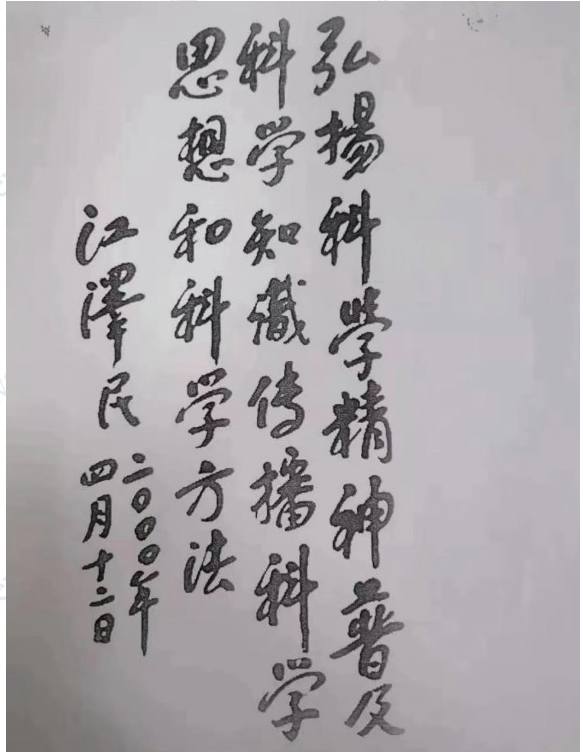 弘揚科學精神普及
科学知識传播科学
思想和科学方法
江澤民
二〇〇〇年
四月十二日